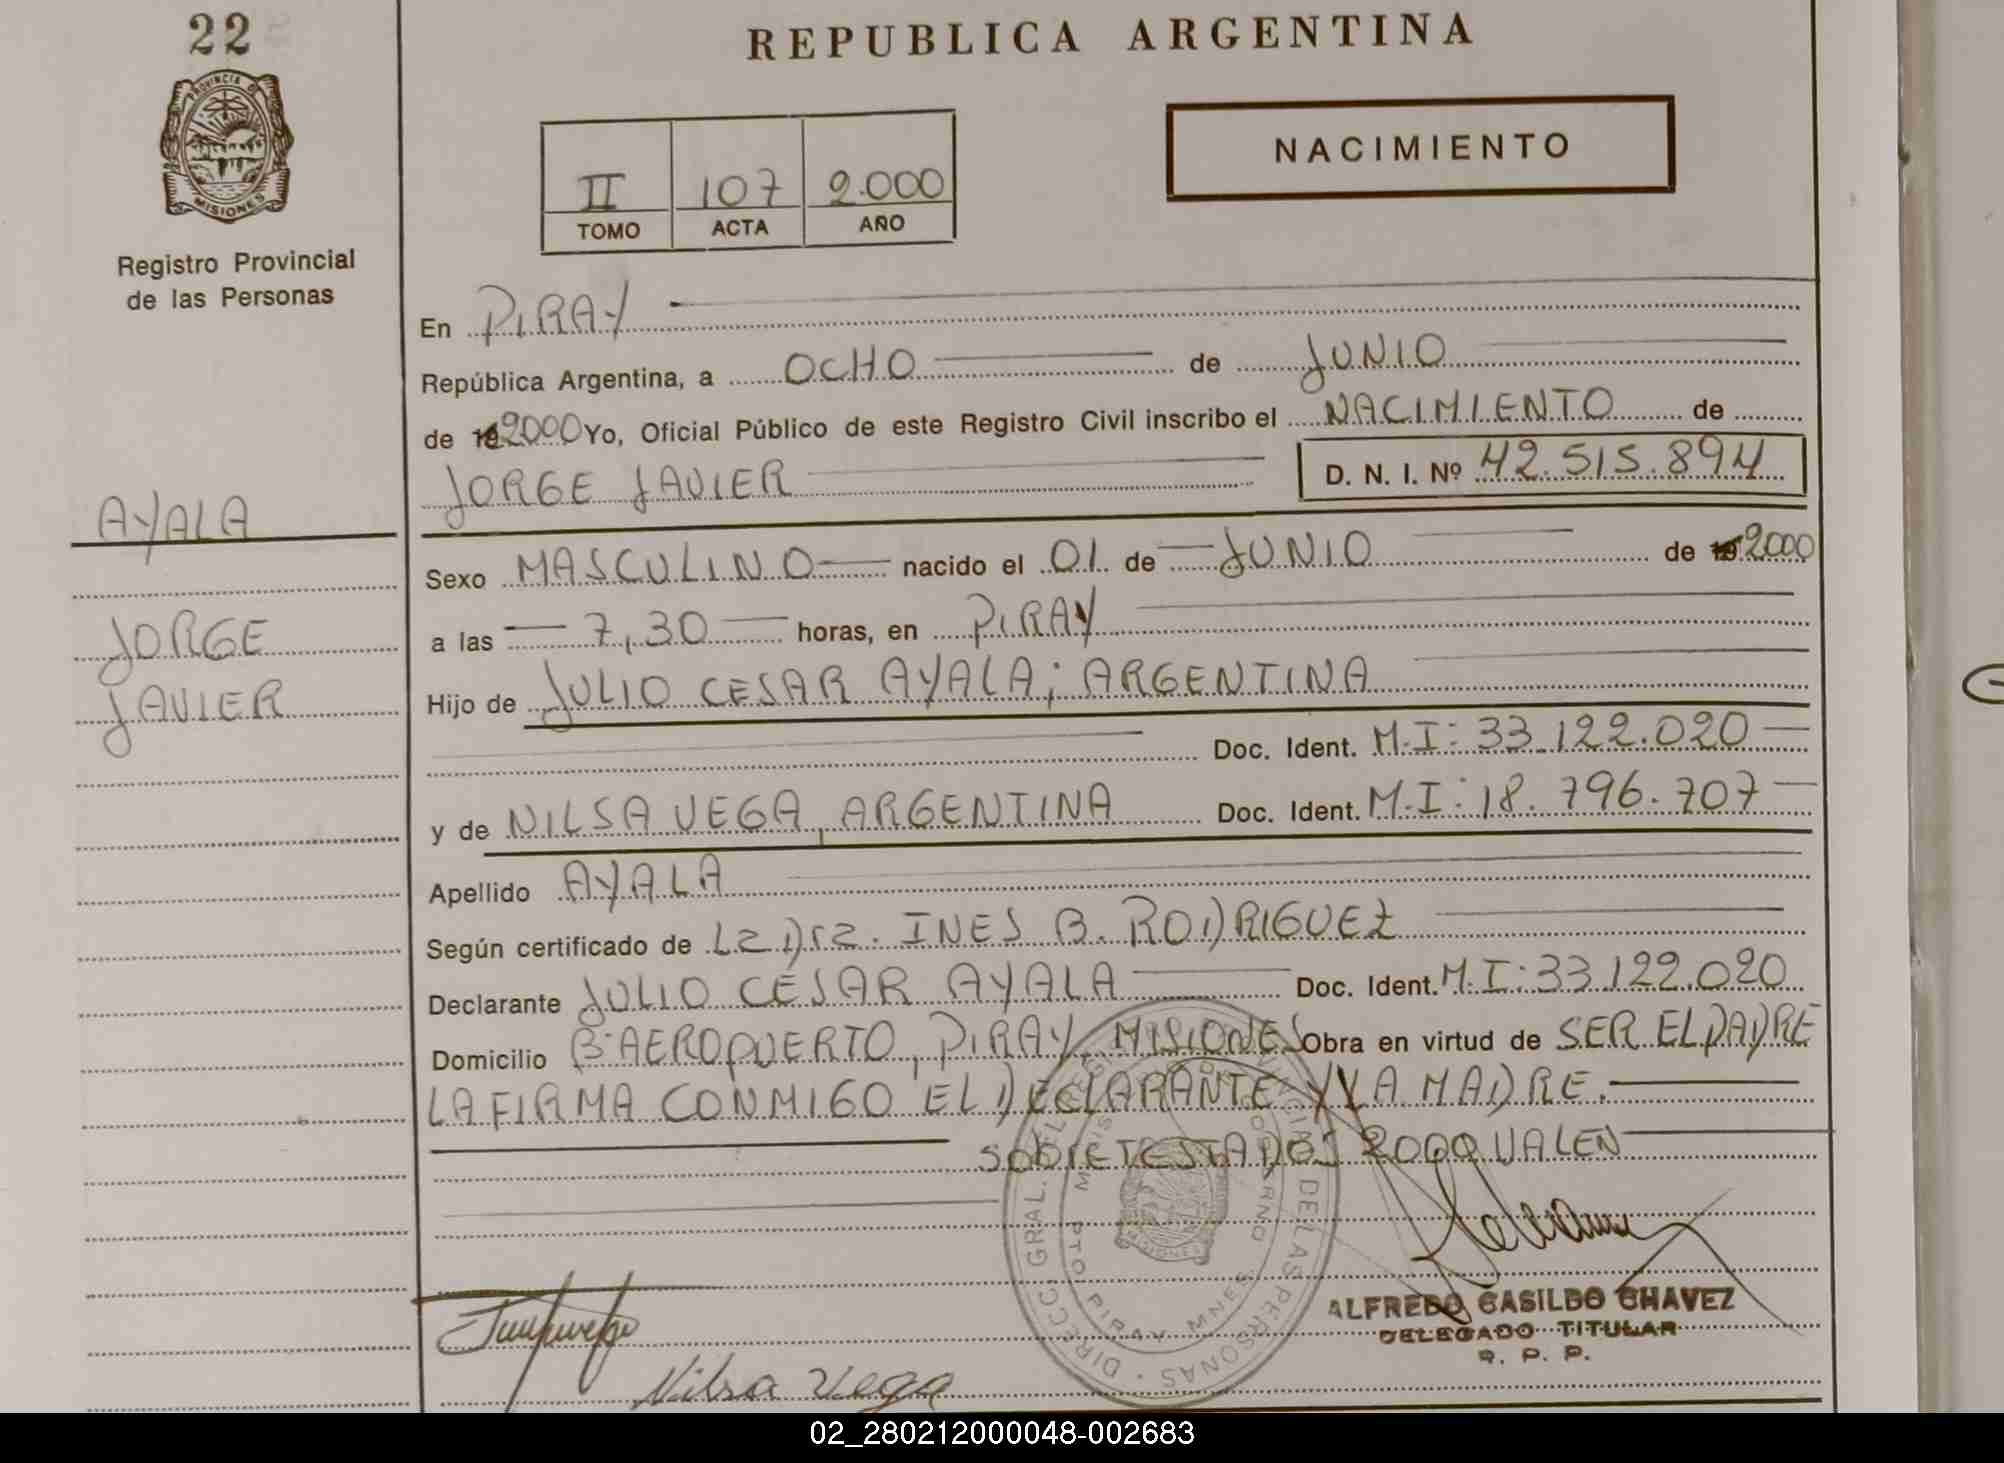 22
PROVINCIA DE
MISIONES
Registro Provincial
de las Personas
AYALA
JORGE
JAVIER
REPUBLICA ARGENTINA
II 107 2.000
TOMO ACTA AÑO
NACIMIENTO
En PIRAY
República Argentina, a OCHO de JUNIO
de 2000 Yo, Oficial Público de este Registro Civil inscribo el NACIMIENTO de
JORGE JAVIER D. N. I. Nº 42.515.894
Sexo MASCULINO nacido el 01 de JUNIO de 2000
a las 7,30 horas, en PIRAY
Hijo de JULIO CESAR AYALA; ARGENTINA
Doc. Ident. M.I: 33.122.020
y de NILSA VEGA, ARGENTINA Doc. Ident. M.I: 18.796.707
Apellido AYALA
Según certificado de La Dra. INES B. RODRIGUEZ
Declarante JULIO CESAR AYALA Doc. Ident. M.I: 33.122.020
Domicilio Bº AEROPUERTO, PIRAY, MISIONES Obra en virtud de SER EL PADRE
LA FIRMA CONMIGO EL DECLARANTE Y LA MADRE.
SOBRETESTADOS 2000 VALEN
DIRECC. GRAL. DEL DE LAS PERSONAS
PTO PIRAY MNES
MISIONES
ALFREDO CASILDO CHAVEZ
DELEGADO TITULAR
R. P. P.
Nilsa Vega
02_280212000048-002683